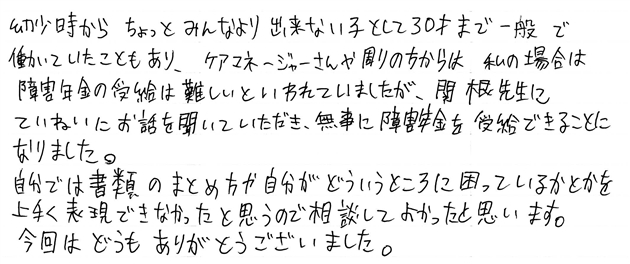 幼少時から ちょっと みんなより 出来ない子として30才まで 一般 で
働いていたこともあり、 ケアマネージャーさんや周りの方からは 私の場合は
障害年金の受給は難しいといわれていましたが、関根先生に
ていねいにお話を聞いていただき、無事に障害年金を 受給できることに
なりました。
自分では書類 のまとめ方や自分がどういうところに困っているかとかを
上手く表現できなかったと思うので相談してよかったと思います。
今回は どうも ありがとうございました。